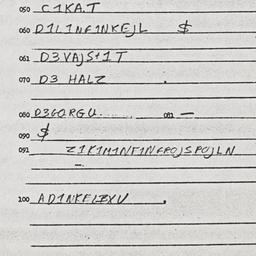 050 C1KA.T
060 D1L1NF1NKEJL $
061 D3VAJS+1T
070 D3 HALZ .
080 D3GQRGU. 081 —
090 $
091 Z1K1M1NF1NGROJSPOJLN
100 AD1NKFLBXU .